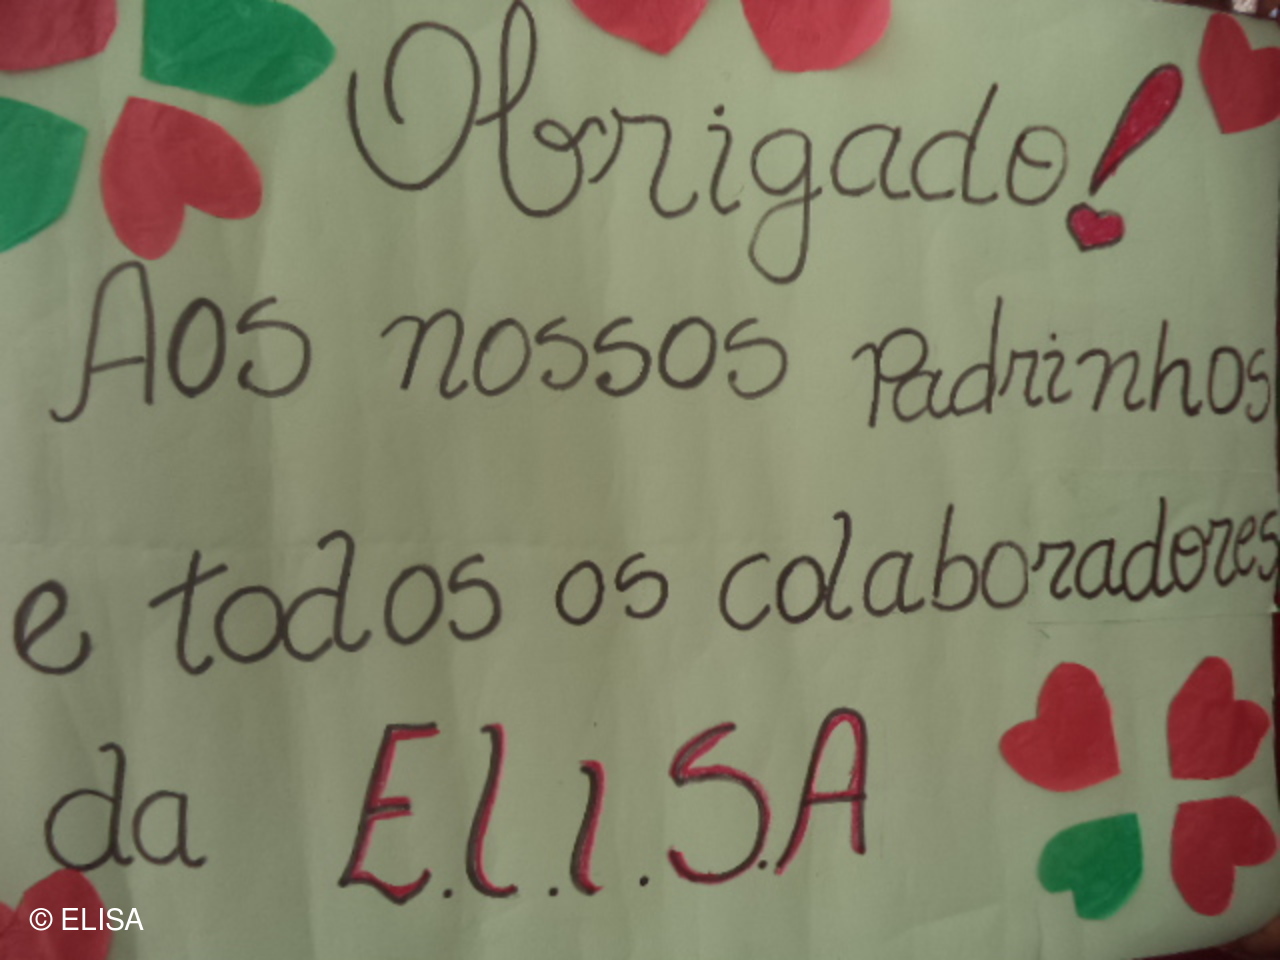 Obrigado!
Aos nossos Padrinhos
e todos os colaboradores
da E.L.I.S.A
© ELISA